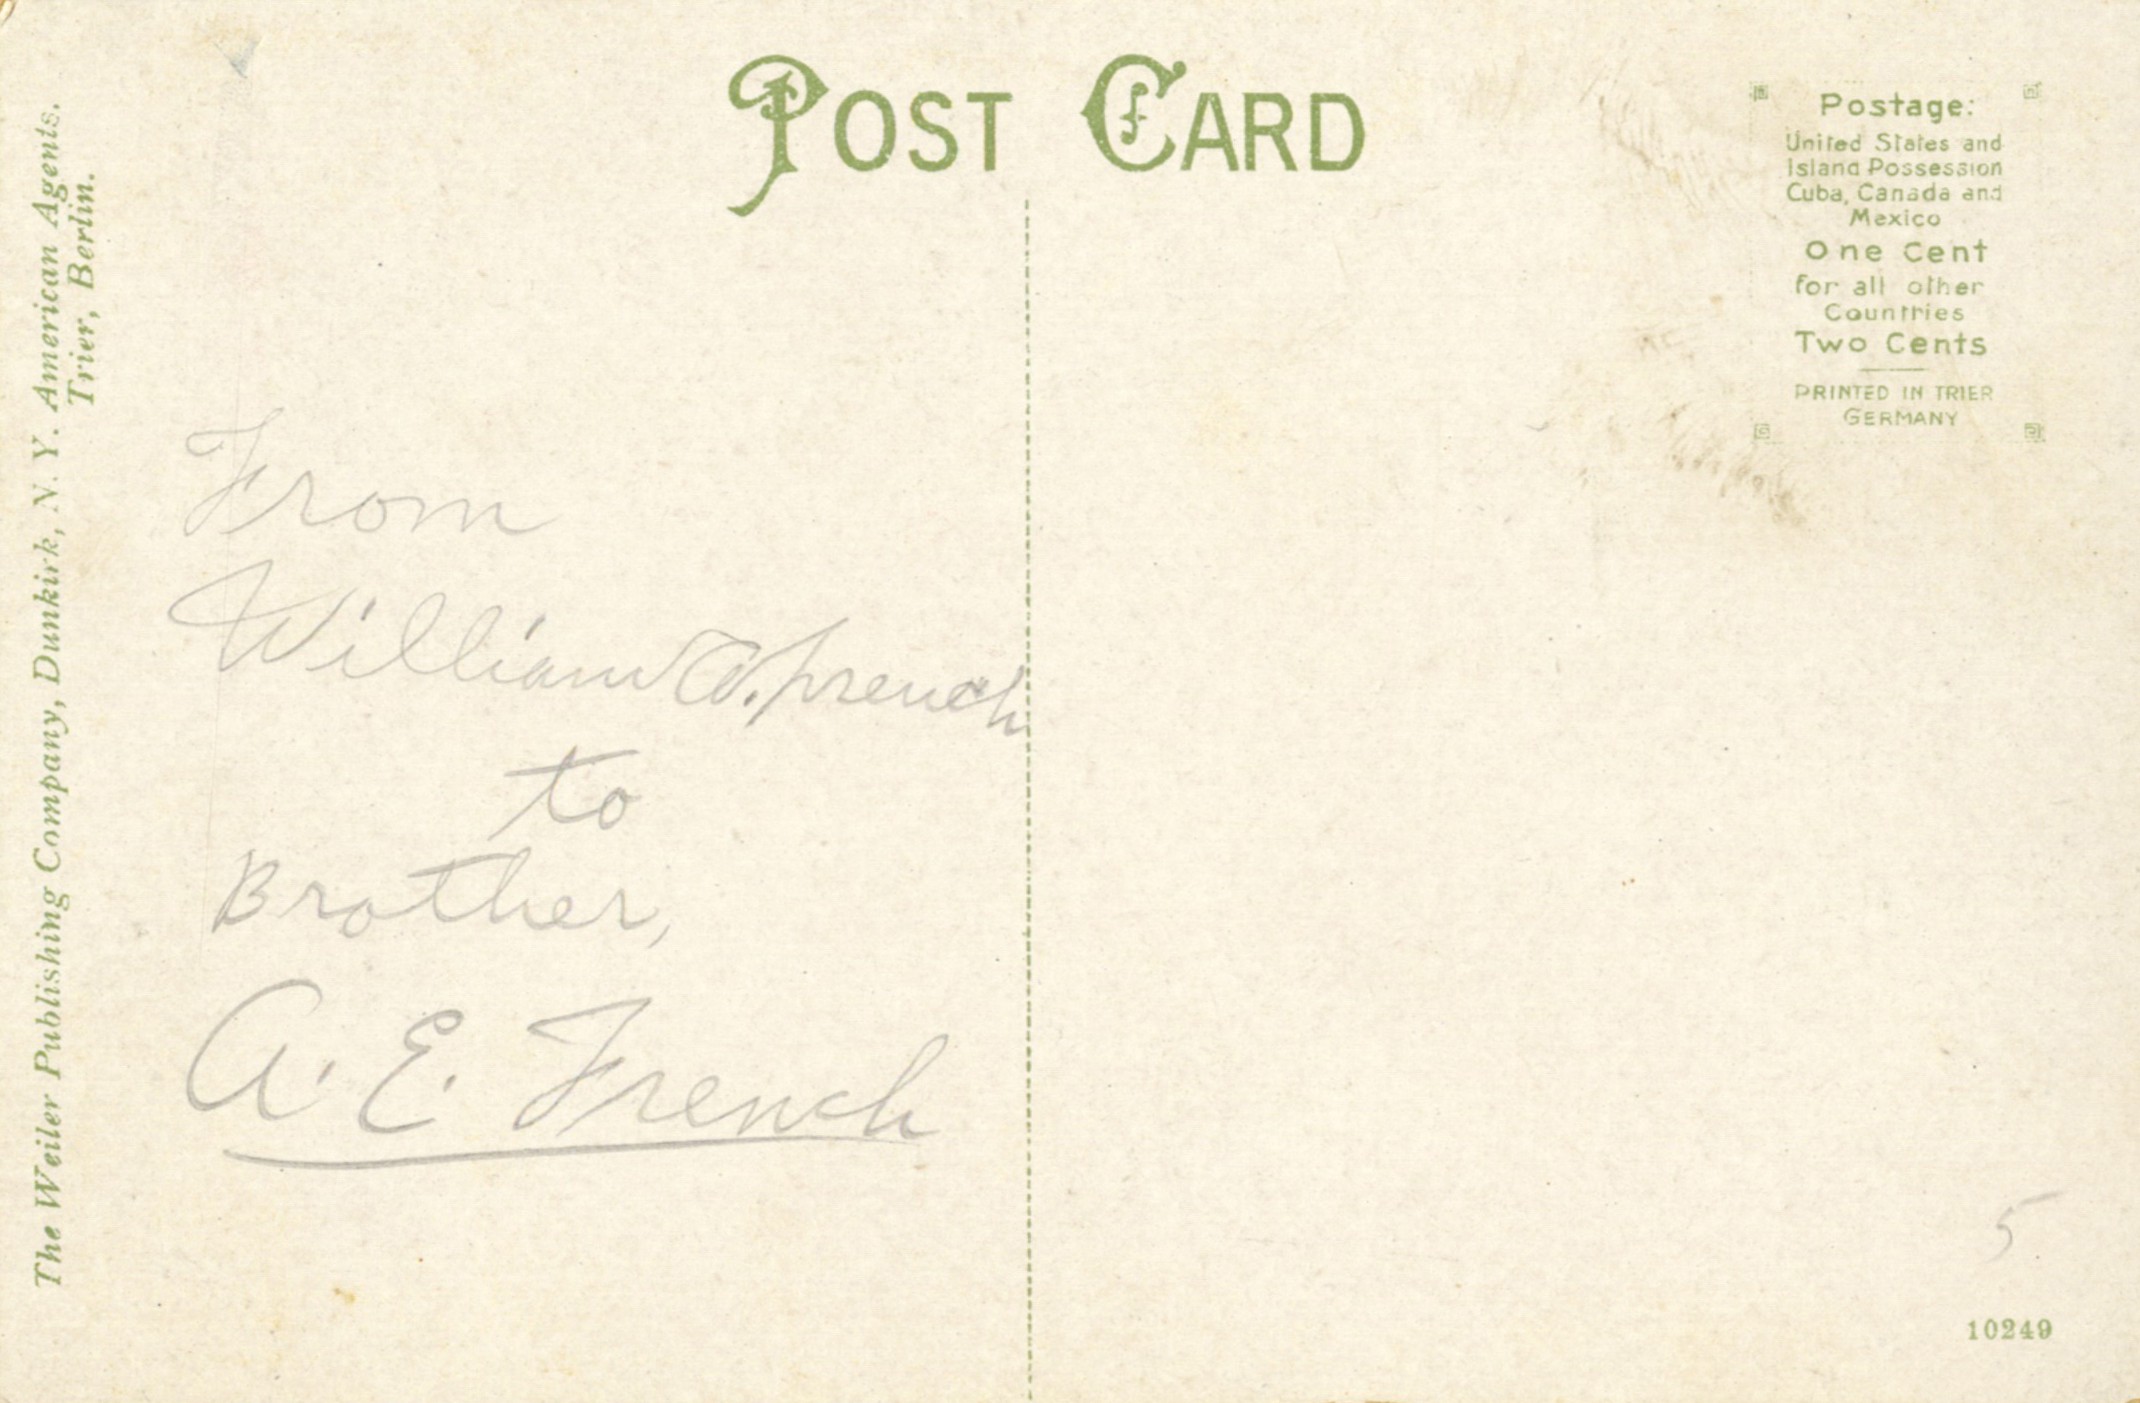 POST CARD
The Weiler Publishing Company, Dunkirk, N. Y. American Agents.
Trier, Berlin.
Postage:
United States and
Island Possession
Cuba, Canada and
Mexico
One Cent
for all other
Countries
Two Cents
PRINTED IN TRIER
GERMANY
From
William W. French
to
Brother,
A. E. French
5
10249